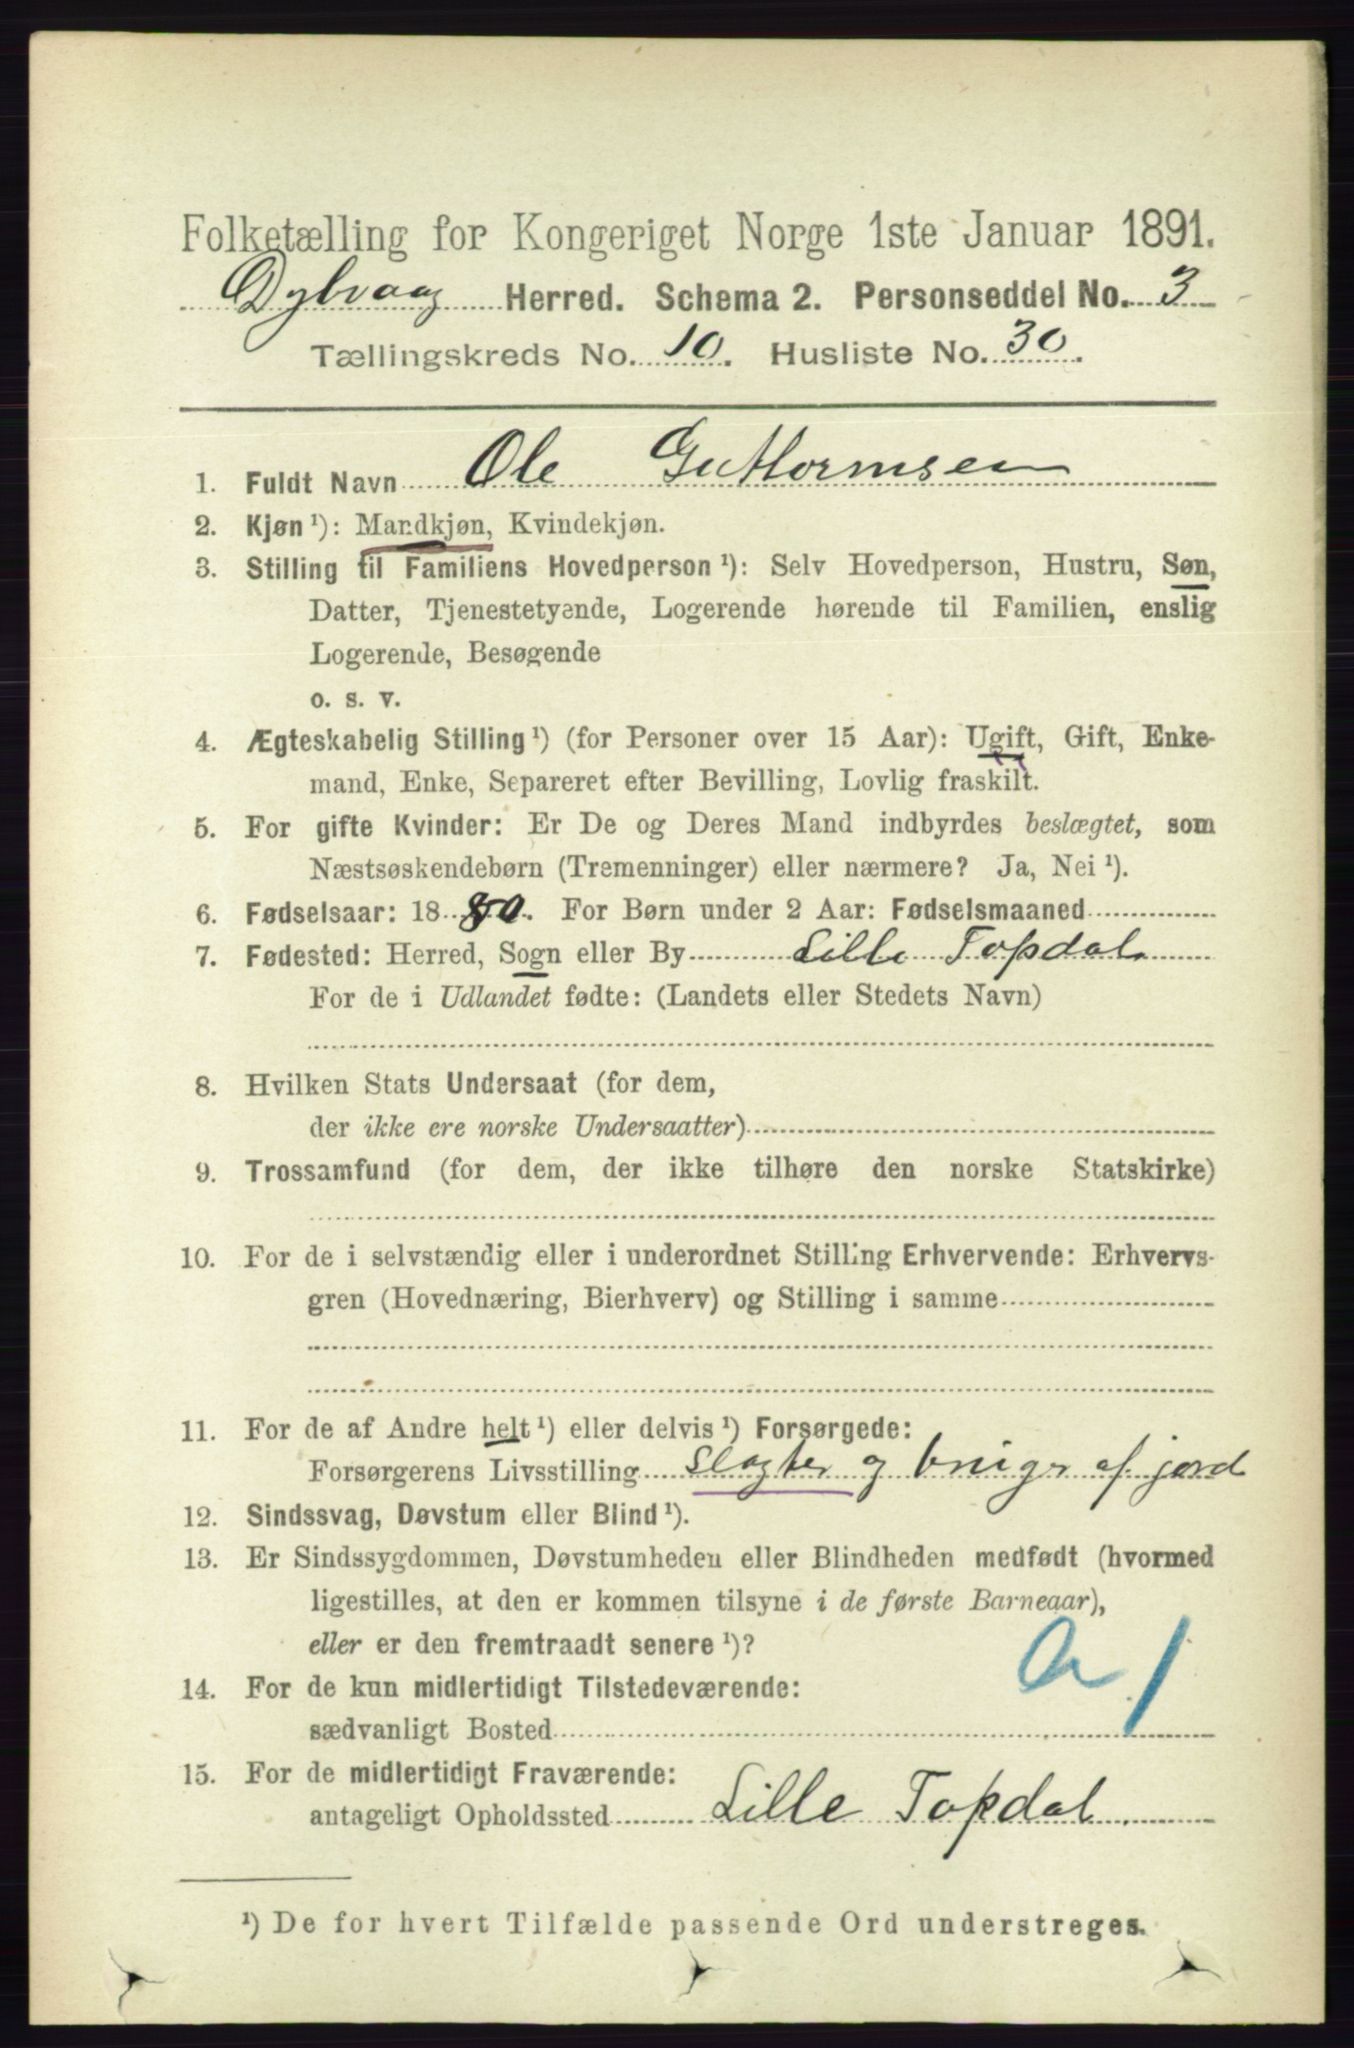 Folketælling for Kongeriget Norge 1ste Januar 1891.
Dybvaag Herred. Schema 2. Personseddel No. 3
Tællingskreds No. 10. Husliste No. 30.
1. Fuldt Navn Ole Guttormsen
2. Kjøn ¹): Mandkjøn, Kvindekjøn.
3. Stilling til Familiens Hovedperson ¹): Selv Hovedperson, Hustru, Søn,
Datter, Tjenestetyende, Logerende hørende til Familien, enslig
Logerende, Besøgende
o. s. v.
4. Ægteskabelig Stilling ¹) (for Personer over 15 Aar): Ugift, Gift, Enke-
mand, Enke, Separeret efter Bevilling, Lovlig fraskilt.
5. For gifte Kvinder: Er De og Deres Mand indbyrdes beslægtet, som
Næstsøskendebørn (Tremenninger) eller nærmere? Ja, Nei ¹).
6. Fødselsaar: 1880. For Børn under 2 Aar: Fødselsmaaned
7. Fødested: Herred, Sogn eller By Lille Topdal
For de i Udlandet fødte: (Landets eller Stedets Navn)
8. Hvilken Stats Undersaat (for dem,
der ikke ere norske Undersaatter)
9. Trossamfund (for dem, der ikke tilhøre den norske Statskirke)
10. For de i selvstændig eller i underordnet Stilling Erhvervende: Erhvervs-
gren (Hovednæring, Bierhverv) og Stilling i samme
11. For de af Andre helt ¹) eller delvis ¹) Forsørgede:
Forsørgerens Livsstilling Slagter og bruger af jord
12. Sindssvag, Døvstum eller Blind ¹).
13. Er Sindssygdommen, Døvstumheden eller Blindheden medfødt (hvormed
ligestilles, at den er kommen tilsyne i de første Barneaar),
eller er den fremtraadt senere ¹)?
14. For de kun midlertidigt Tilstedeværende:
sædvanligt Bosted
15. For de midlertidigt Fraværende:
antageligt Opholdssted Lille Topdal
¹) De for hvert Tilfælde passende Ord understreges.